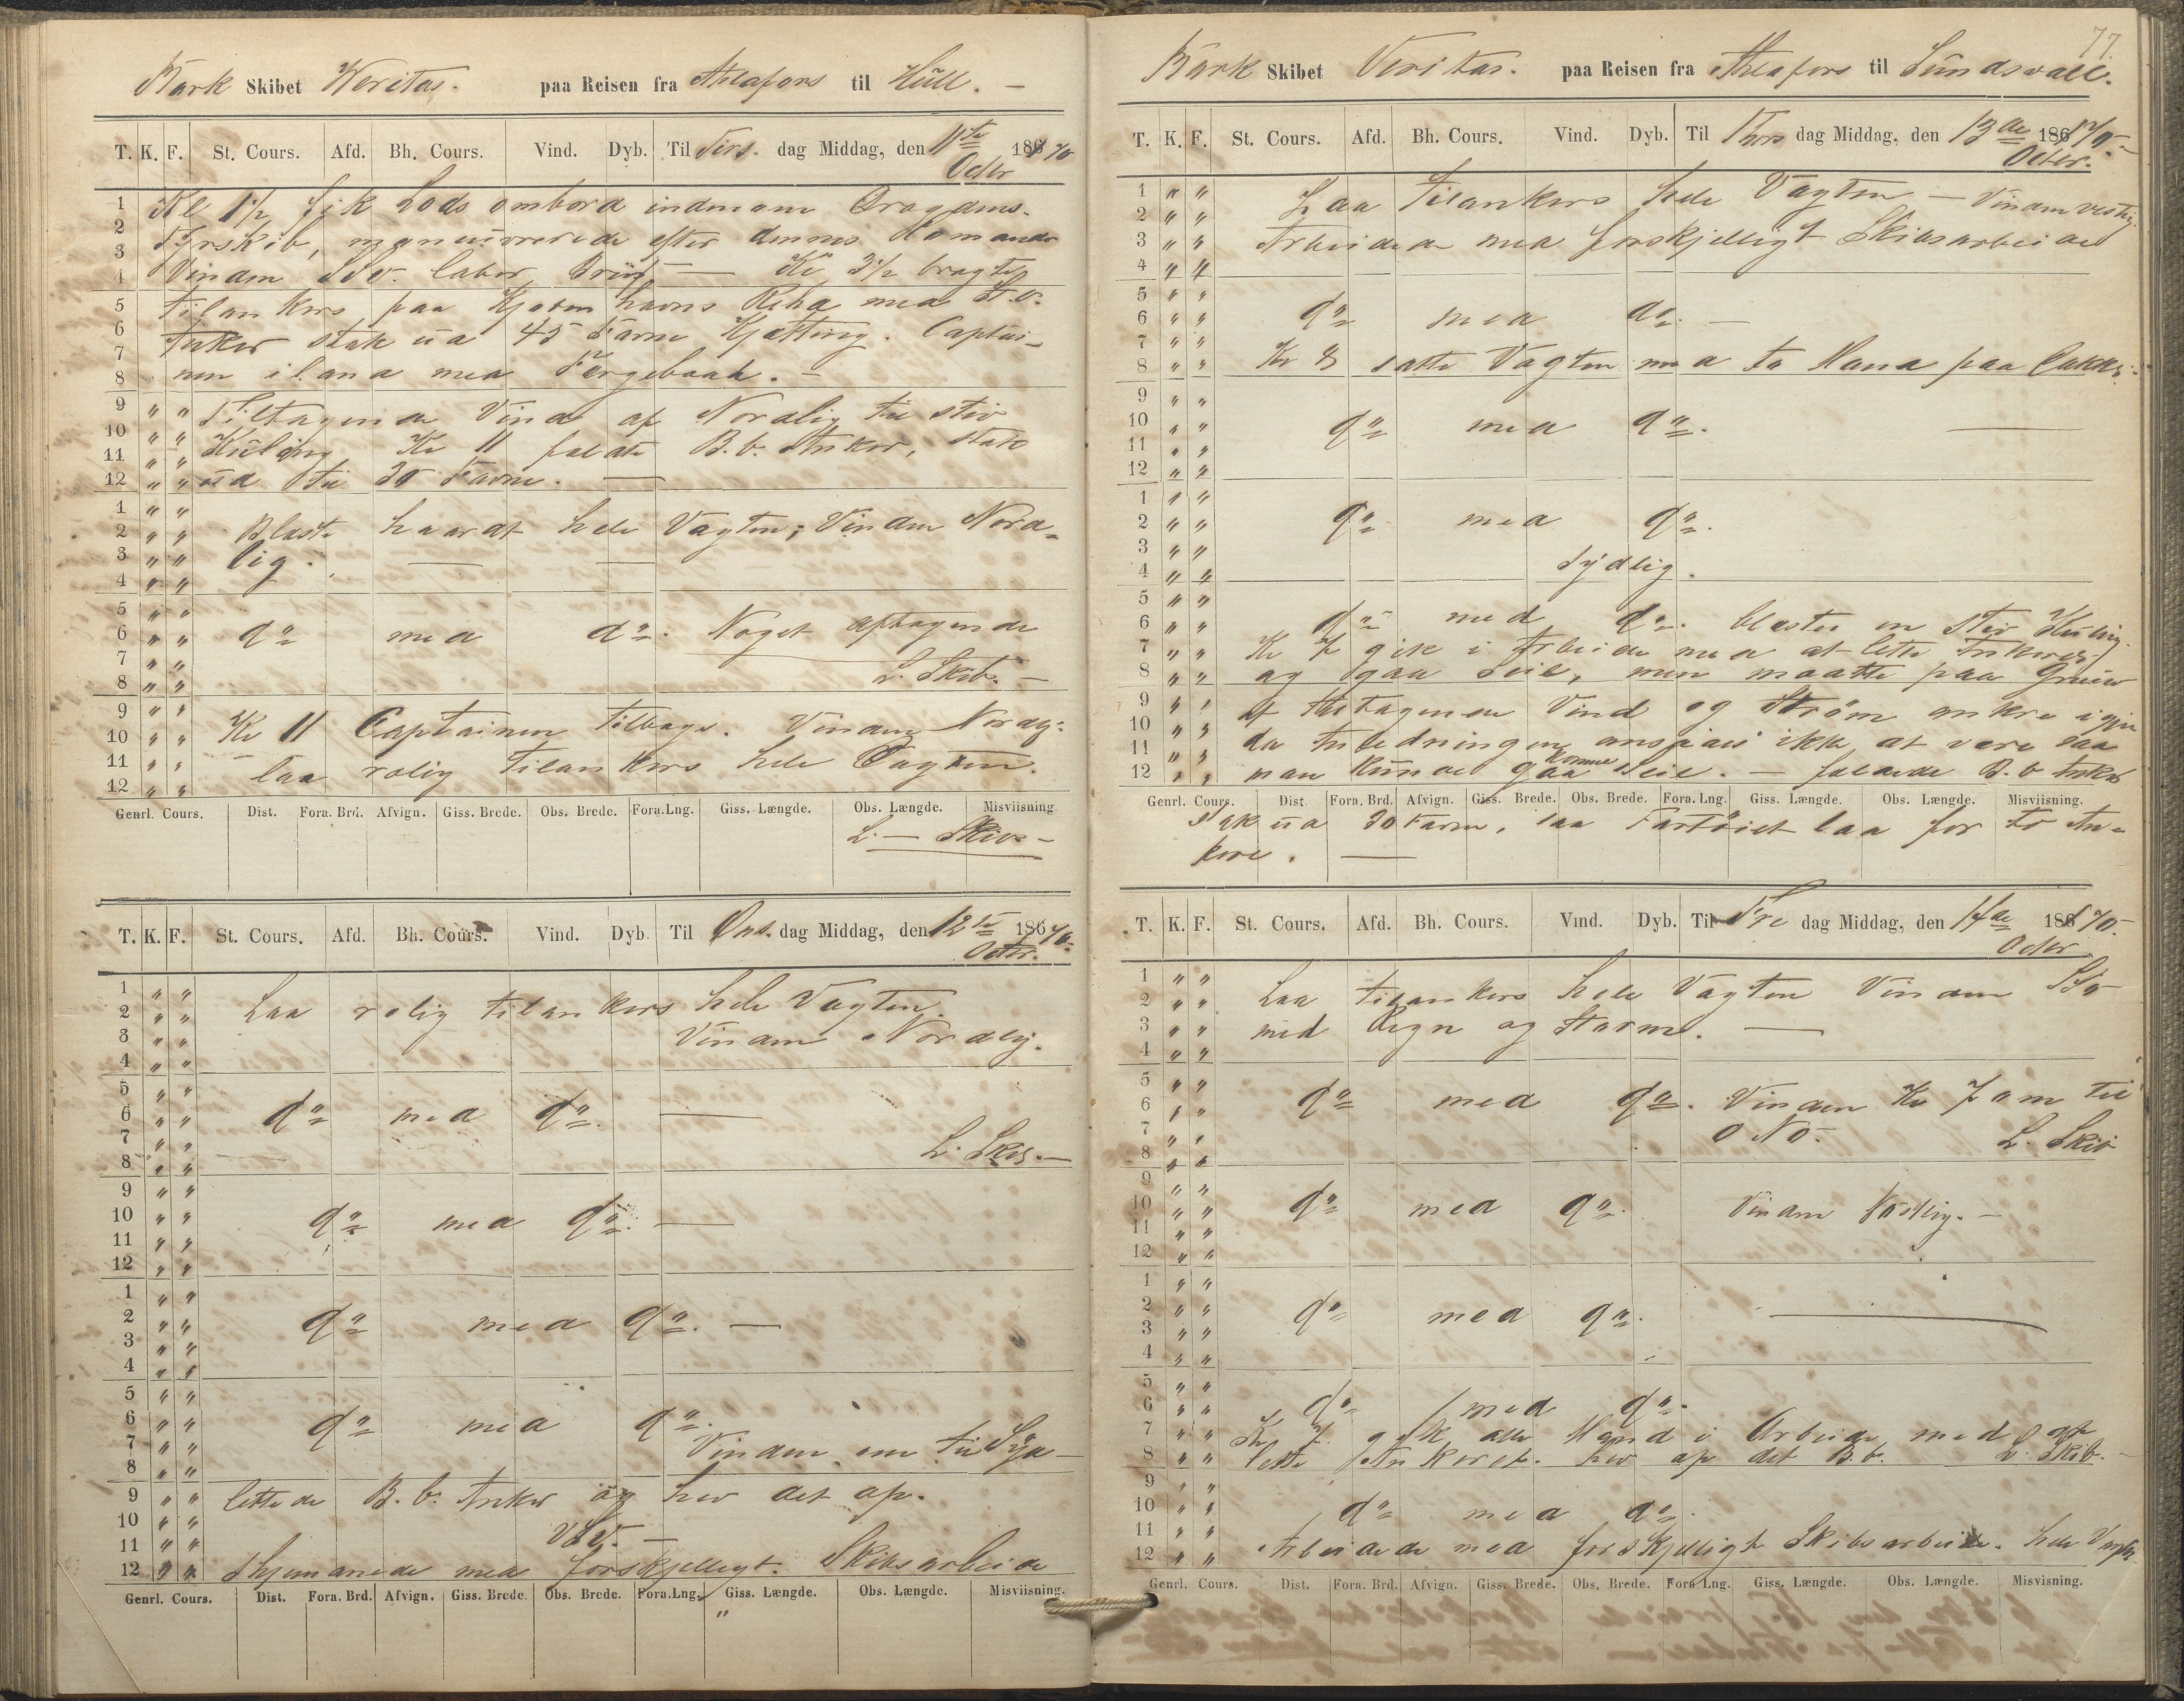 Bark Skibet Veritas. paa Reisen fra til Hull. —
T. K. F. St. Cours. Afd. Bh. Cours. Vind. Dyb. Til Tirs. dag Middag, den 11te Octbr 1870
Kl 1½ fik Lods ombord indenom
Fyrskib, maneuvrerede efter dennes Komando
Vinden laber Kl 3½ bragtes
tilankers paa Kjøbenhavns Rhed med St.b.
Anker stak ud 45 Favne Kjetting. Captai-
nen iland med Færgebaad. —
Tiltagende Vind af Nordlig til stiv
Kuling Kl 11 faldt B.b. Anker, stak
ud til 30 Favne. —
Blaste haardt hele Vagten; Vinden Nord-
lig.
do med do. Noget aftagende
L. Skib. —
Kl 11 Captainen tilbage. Vinden Nordlig.
laa rolig tilankers hele Vagten.
Genrl. Cours. Dist. Fora. Brd. Afvign. Giss. Brede. Obs. Brede. Fora. Lng. Giss. Længde. Obs. Længde. Misviisning.
L. — Skib —
T. K. F. St. Cours. Afd. Bh. Cours. Vind. Dyb. Til Ons. dag Middag, den 12te Octbr. 1870.
Laa rolig tilankers hele Vagten.
Vinden Nordlig.
do med do. —
L. Skib. —
do med do. —
do med do. —
do med do.
Vinden om til Syd —
lettede B.b. Anker og hev det op.
VSV. —
med forskjelligt Skibsarbeide
Genrl. Cours. Dist. Fora. Brd. Afvign. Giss. Brede. Obs. Brede. Fora. Lng. Giss. Længde. Obs. Længde. Misviisning.
77.
Bark Skibet Veritas. paa Reisen fra til Sundsvall.
T. K. F. St. Cours. Afd. Bh. Cours. Vind. Dyb. Til Thors dag Middag, den 13de Octbr. 1870.
Laa tilankers hele Vagten — Vinden vestlig.
Arbeidede med forskjelligt Skibsarbeide
do med do. —
Kl 8 satte Vagten med to Mand paa Dækket.
do med do. —
do med do.
Sydlig.
do med do. blæste en stiv Kuling.
Kl 7 gik i Arbeide med at lette Ankeret
og gaa Seil, men maatte paa Grund
af tiltagende Vind og Strøm ankre igjen
da Anledningen ansaaes ikke at være saa
man kunde komme Seil. — faldede B.b Anker
Genrl. Cours. Dist. Fora. Brd. Afvign. Giss. Brede. Obs. Brede. Fora. Lng. Giss. Længde. Obs. Længde. Misviisning.
stak ud 30 Favne, saa Fartøiet laa for to An-
kere. —
T. K. F. St. Cours. Afd. Bh. Cours. Vind. Dyb. Til Fre dag Middag, den 14de Octbr 1870.
Laa tilankers hele Vagten Vinden
med Regn og Storm. —
do med do. Vinden Kl 7 om til
ONO. L. Skib
do med do. Vinden —
do med do. —
do med do.
Kl 7 gik alle Mand i Arbeide med at
lette Ankeret. hev op det B.b. L. Skib. —
do med do.
Arbeidede med forskjelligt Skibsarbeide. hele Vagten
Genrl. Cours. Dist. Fora. Brd. Afvign. Giss. Brede. Obs. Brede. Fora Lng. Giss. Længde. Obs. Længde. Misvisning.